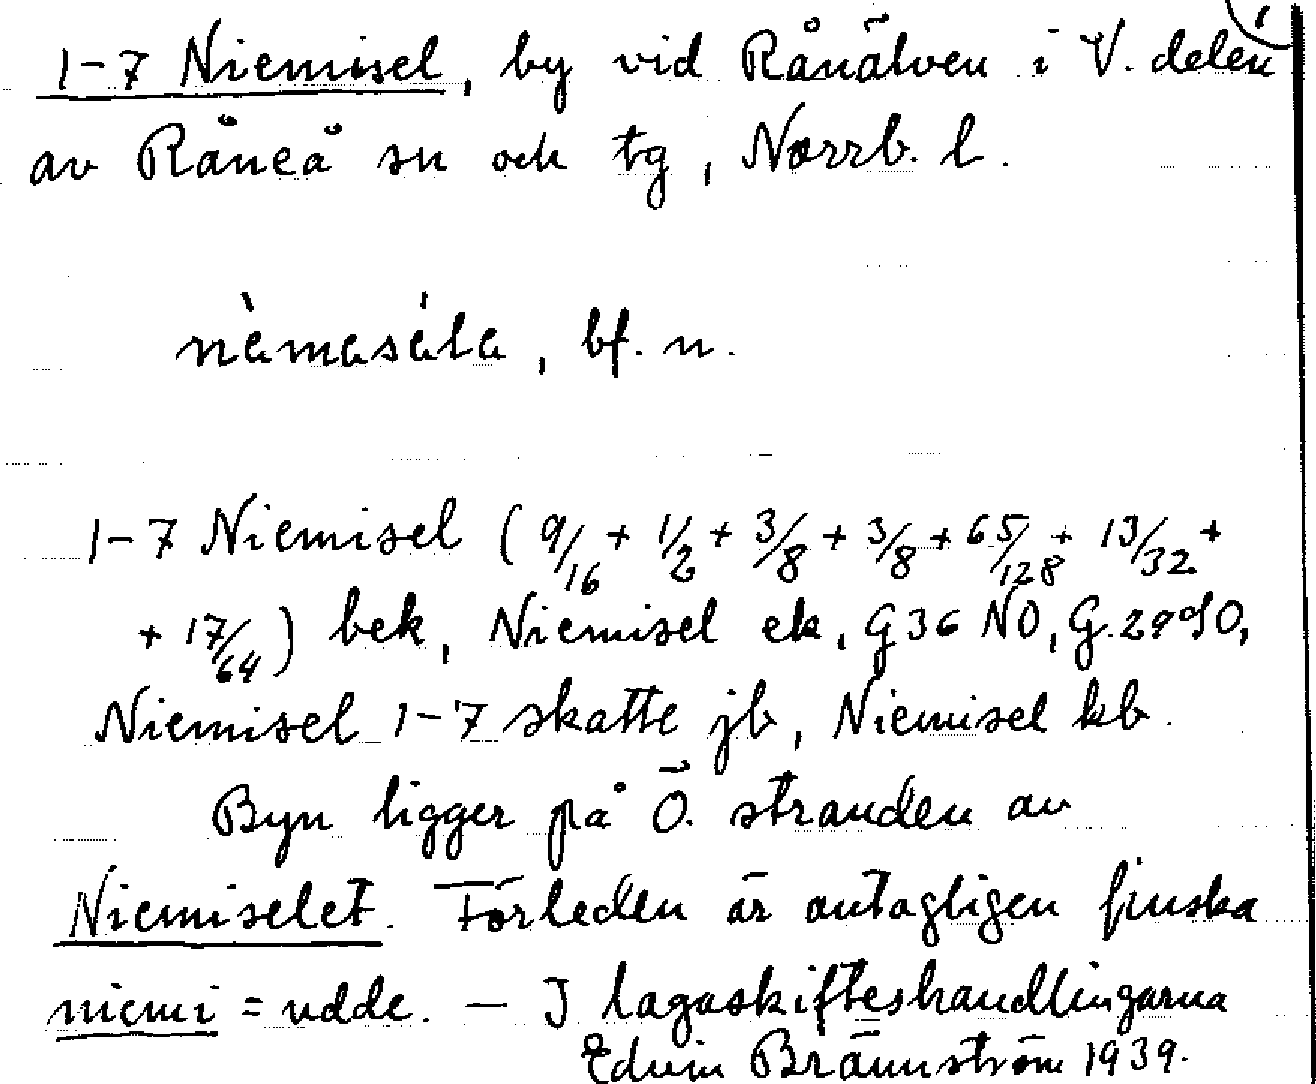 1
1-7 Niemisel, by vid Råneälven i V. delen
av Råneå sn och tg, Norrb. l.
nèmasála, bf. n.
1-7 Niemisel (9/16 + 1/2 + 3/8 + 3/8 + 65/128 + 13/32 +
+ 17/64) bek, Niemisel ek, G 36 NO,
Niemisel 1-7 skatte jb, Niemisel kb.
Byn ligger på Ö. stranden av
Niemiselet. Förleden är antagligen finska
niemi = udde. — I lagaskifteshandlingarna
Edvin Brännström 1939.